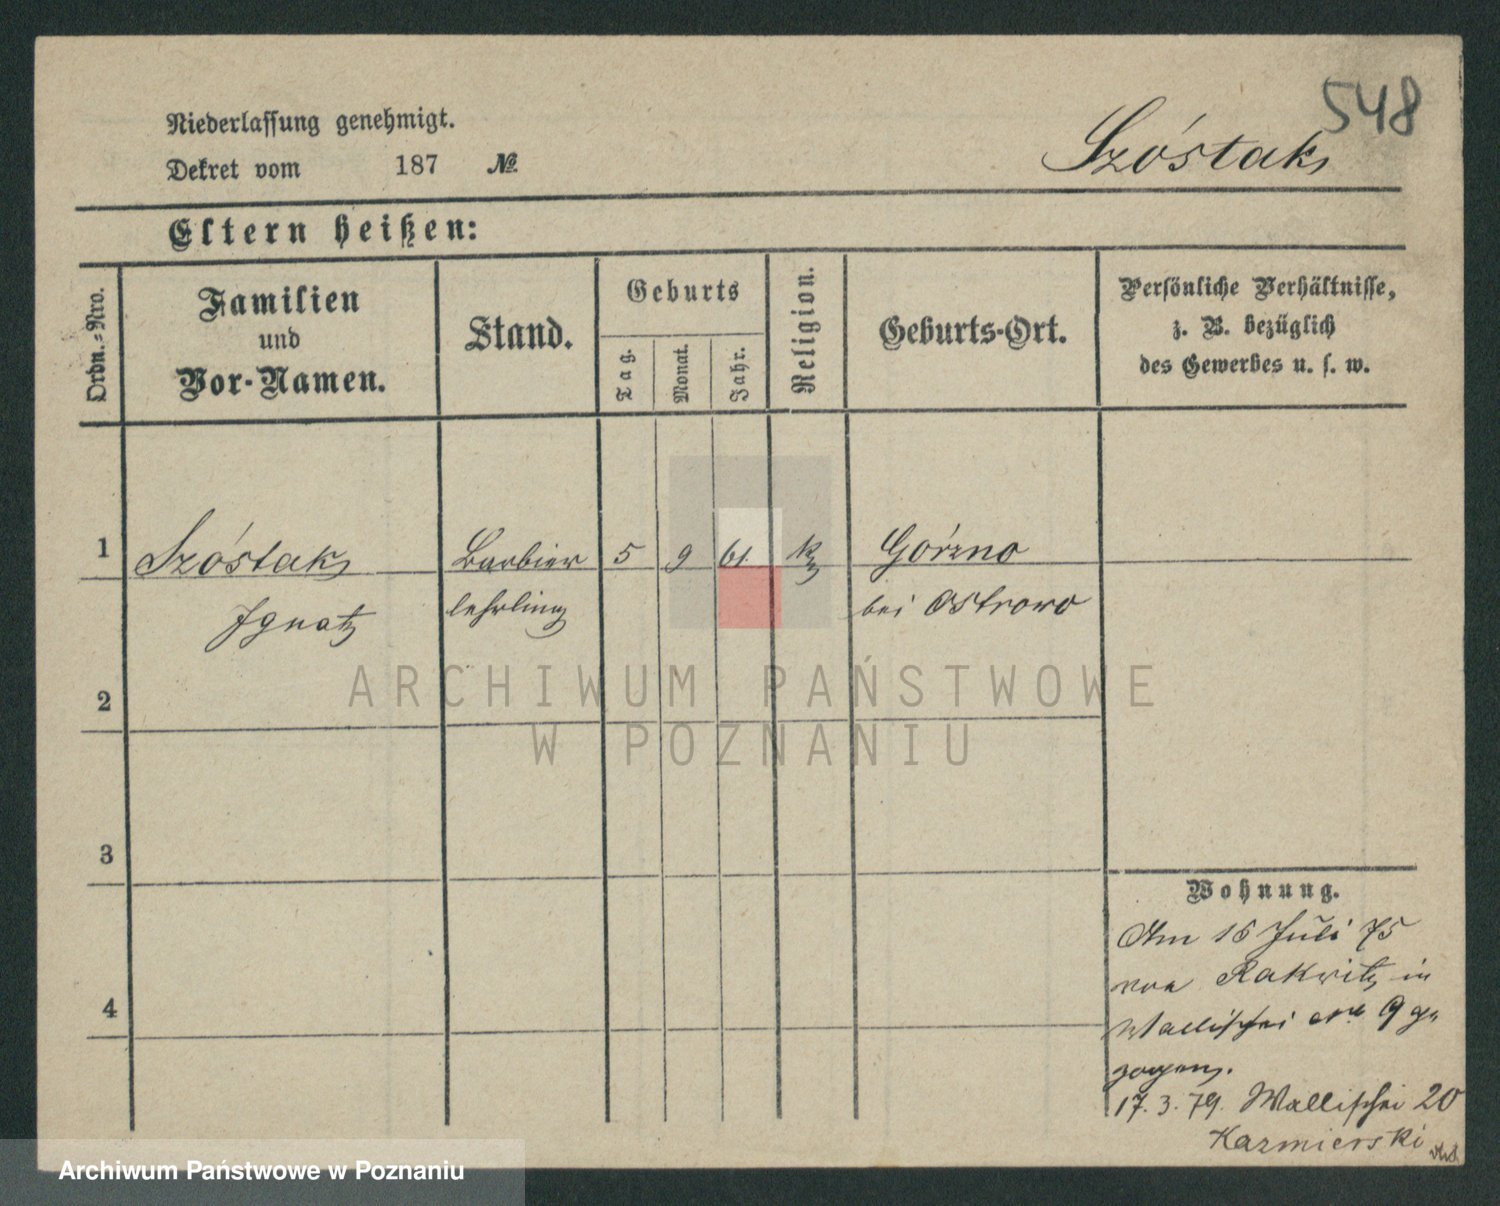 548
Szóstak
Niederlassung genehmigt.
Dekret vom 187 №
Eltern heißen:
Ordn.-Nro.
Familien
und
Vor-Namen.
Stand.
Geburts
Tag.
Monat.
Jahr.
Religion.
Geburts-Ort.
Persönliche Verhältnisse,
z. B. bezüglich
des Gewerbes u. s. w.
1 Szóstak Barbier 5 9 61 k Górzno
Ignatz lehrling bei Ostrowo
2
3
4
Wohnung.
Am 16 Juli 75
von Rakwitz in
Wallischei No 9 ge
zogen.
17. 3. 79. Wallischei 20
Kazmierski
ARCHIWUM PAŃSTWOWE
W POZNANIU
Archiwum Państwowe w Poznaniu